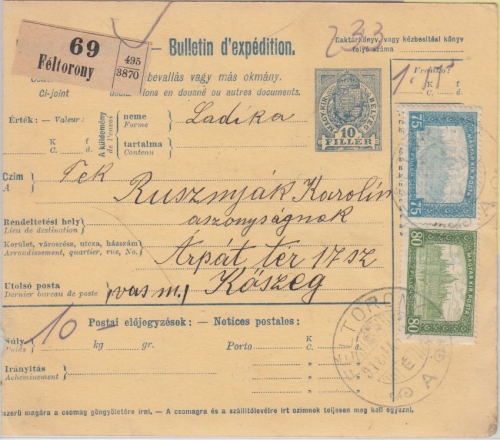 69
Féltorony
495
3870
— Bulletin d'expédition.
233
Raktárkönyv, vagy kézbesítési könyv
folyószáma
bevallás vagy más okmány.
Ci-joint
tions en douane ou autres documents.
Érték: - Valeur:
K f
C. d.
A küldemény
de l'envoi
neme
Forme
Ladika
tartalma
Contenu
MAGYAR KIR.
BÉLYEG
10
FILLÉR
75
75
MAGYAR KIR. POSTA
Czim
A
Tek
Rusznyják Karolin
aszonyságnak
Rendeltetési hely
Lieu de destination
Kerület, városrész, utcza, házszám
Arrondissement, quartier, rue, No.
Árpát tér 17 sz
Utolsó posta
Dernier bureau de poste
(vas m.)
Kőszeg
80
80
MAGYAR KIR. POSTA
10
Postai előjegyzések: - Notices postales:
Súly
Poids
kg gr.
Porto
K f
C. d.
Irányítás
Acheminement
FÉLTORONY
szerű magára a csomag göngyületére írni. — A csomagra és a szállítólevélre irt czimnek teljesen meg kell egyezni.